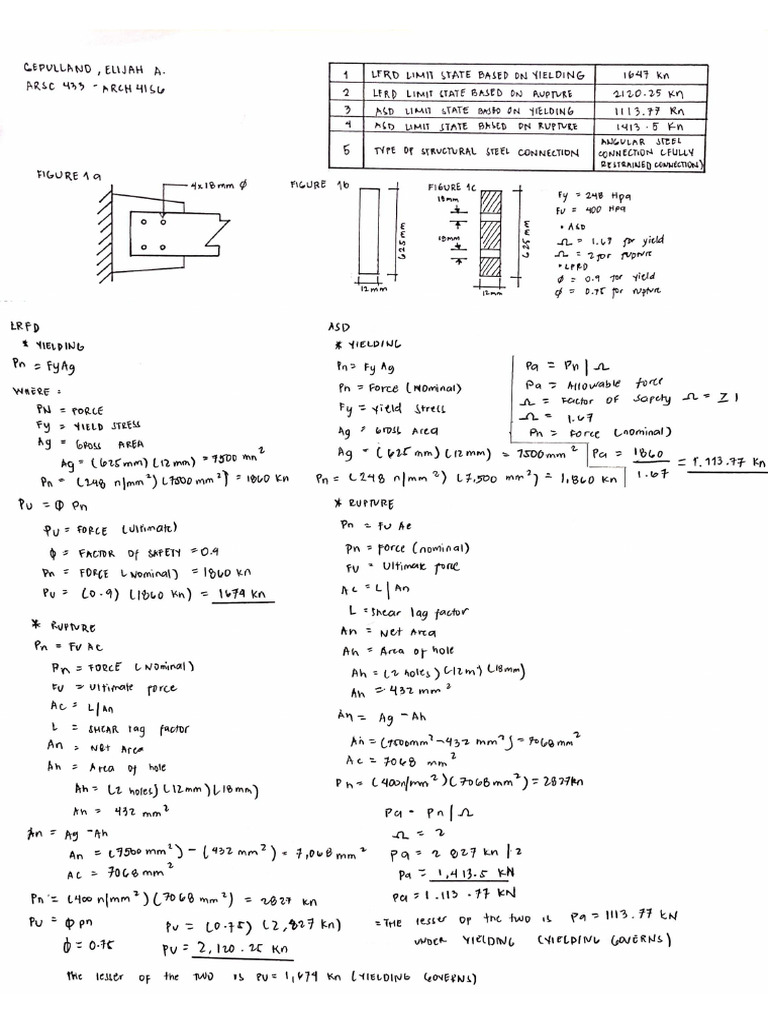 CEPULLANO, ELIJAH A.
ARSC 433 - ARCH 41S6
1 LFRD LIMIT STATE BASED ON YIELDING 1647 Kn
2 LFRD LIMIT STATE BASED ON RUPTURE 2120.25 Kn
3 ASD LIMIT STATE BASED ON YIELDING 1113.77 Kn
4 ASD LIMIT STATE BASED ON RUPTURE 1413.5 Kn
5 TYPE OF STRUCTURAL STEEL CONNECTION ANGULAR STEEL
CONNECTION (FULLY
RESTRAINED CONNECTION)
FIGURE 1a
4x18mm ϕ
FIGURE 1b
625mm
12mm
FIGURE 1C
18mm
18mm
625mm
12mm
Fy = 248 Mpa
Fu = 400 Mpa
• ASD
Ω = 1.67 for yield
Ω = 2 for rupture
• LFRD
ϕ = 0.9 for yield
ϕ = 0.75 for rupture
LRFD
* YIELDING
Pn = FyAg
WHERE:
PN = FORCE
Fy = YIELD STRESS
Ag = GROSS AREA
Ag = (625mm)(12mm) = 7500 mm²
Pn = (248 n/mm²)(7500mm²) = 1860 Kn
Pu = ϕ Pn
Pu = FORCE (Ultimate)
ϕ = FACTOR OF SAFETY = 0.9
Pn = FORCE (Nominal) = 1860 Kn
Pu = (0.9)(1860 Kn) = 1674 Kn
* RUPTURE
Pn = Fu Ac
Pn = FORCE (Nominal)
Fu = Ultimate force
Ac = L/An
L = SHEAR lag factor
An = Net Area
Ah = Area of hole
Ah = (2 holes)(12mm)(18mm)
An = 432 mm²
An = Ag - Ah
An = (7500mm²) - (432 mm²) = 7,068mm²
Ac = 7068mm²
Pn = (400 n/mm²)(7068 mm²) = 2827 Kn
Pu = ϕ pn Pu = (0.75)(2,827 Kn)
ϕ = 0.75 Pu = 2,120.25 Kn
The lesser of the TWO is Pu = 1,674 Kn (YIELDING GOVERNS)
ASD
* YIELDING
Pn = Fy Ag
Pn = Force (Nominal)
Fy = Yield Stress
Ag = Gross Area
Ag = (625mm)(12mm) = 7500mm²
Pn = (248 n/mm²)(7,500 mm²) = 1,860 Kn
Pa = Pn/Ω
Pa = Allowable force
Ω = Factor of Safety Ω = Z1
Ω = 1.67
Pn = Force (nominal)
Pa = 1860 / 1.67 = 1,113.77 Kn
* RUPTURE
Pn = Fu Ae
Pn = force (nominal)
Fu = Ultimate force
Ac = L/An
L = Shear lag factor
An = Net Area
Ah = Area of hole
Ah = (2 holes)(12m)(18mm)
An = 432 mm²
An = Ag - Ah
An = (7500mm² - 432 mm²) = 7068mm²
Ac = 7068 mm²
Pn = (400n/mm²)(7068mm²) = 2827Kn
Pa = Pn/Ω
Ω = 2
Pa = 2 827 Kn/2
Pa = 1,413.5 KN
Pa = 1.113.77 KN
= THE lesser of the two is Pa = 1113.77 KN
UNDER YIELDING (YIELDING GOVERNS)